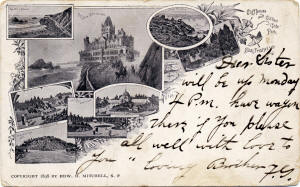 Cliff House
and
Sutro
Park
San Fran
Dear Sister
will be up Monday
4 P.m. have wagon
there if you please
all well with love to
you " loving Brother
COPYRIGHT 1898 BY EDW. H. MITCHELL, S. F.